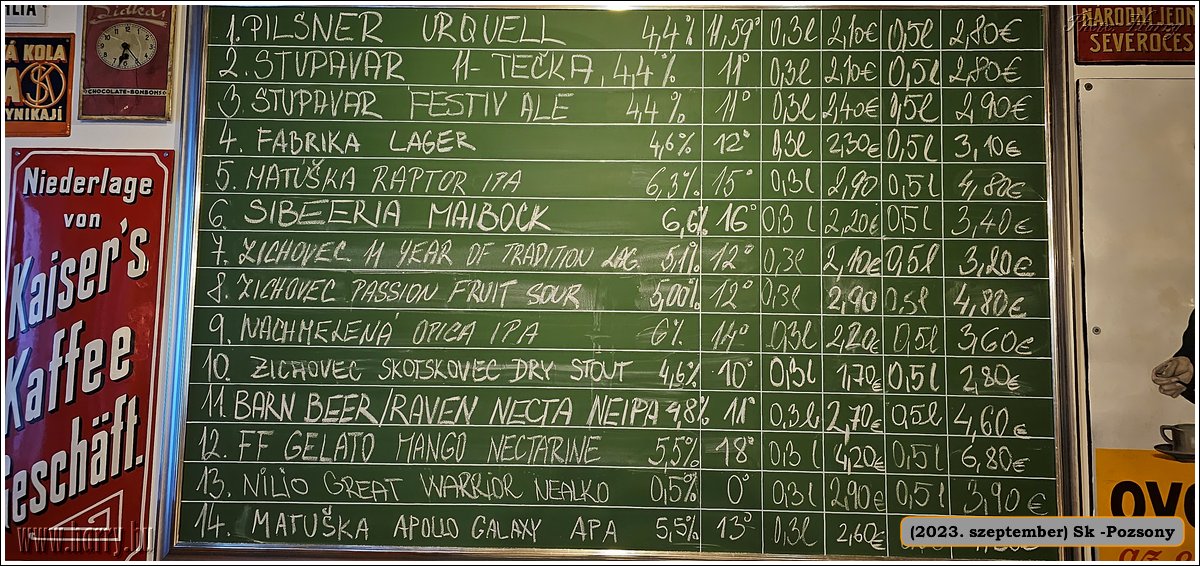 NÁRODNÍ JEDN
SEVEROČES
KOLA
YNIKAJÍ
Lidka
CHOCOLATE-BONBONS
Niederlage
von
Kaiser's
Kaffee
Geschäft.
1. PILSNER URQUELL 4,4% 11,59° 0,3l 2,10€ 0,5l 2,80€
2. STUPAVAR 11-TEČKA 4,4% 11° 0,3l 2,10€ 0,5l 2,80€
3 STUPAVAR FESTIV ALE 4,4% 11° 0,3l 2,40€ 0,5l 2,90€
4. FABRIKA LAGER 4,6% 12° 0,3l 2,30€ 0,5l 3,10€
5. MATÚŠKA RAPTOR IPA 6,3% 15° 0,3l 2,90 0,5l 4,80€
6. SIBEERIA MAIBOCK 6,6% 16° 0,3l 2,20€ 0,5l 3,40€
7. ZICHOVEC 11 YEAR OF TRADITION LAG. 5,1% 12° 0,3l 2,10€ 0,5l 3,20€
8. ZICHOVEC PASSION FRUIT SOUR 5,00% 12° 0,3l 2,90 0,5l 4,80€
9. NACHMELENÁ OPICA IPA 6% 14° 0,3l 2,20€ 0,5l 3,60€
10. ZICHOVEC SKOTSKOVEC DRY STOUT 4,6% 10° 0,3l 1,70€ 0,5l 2,80€
11. BARN BEER/RAVEN NECTA NEIPA 4,8% 11° 0,3l 2,70€ 0,5l 4,60€
12. FF GELATO MANGO NECTARINE 5,5% 18° 0,3l 4,20€ 0,5l 6,80€
13. NILIO GREAT WARRIOR NEALKO 0,5% 0° 0,3l 2,90€ 0,5l 3,90€
14. MATUŠKA APOLLO GALAXY APA 5,5% 13° 0,3l 2,60€
OVO
(2023. szeptember) Sk -Pozsony
www.horry.hu